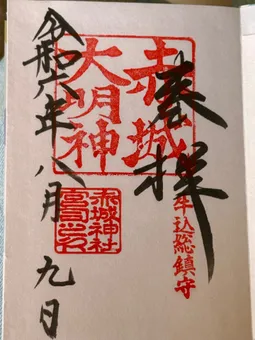 奉拝
牛込総鎮守
赤城
大明神
赤城神社
令和六年八月九日